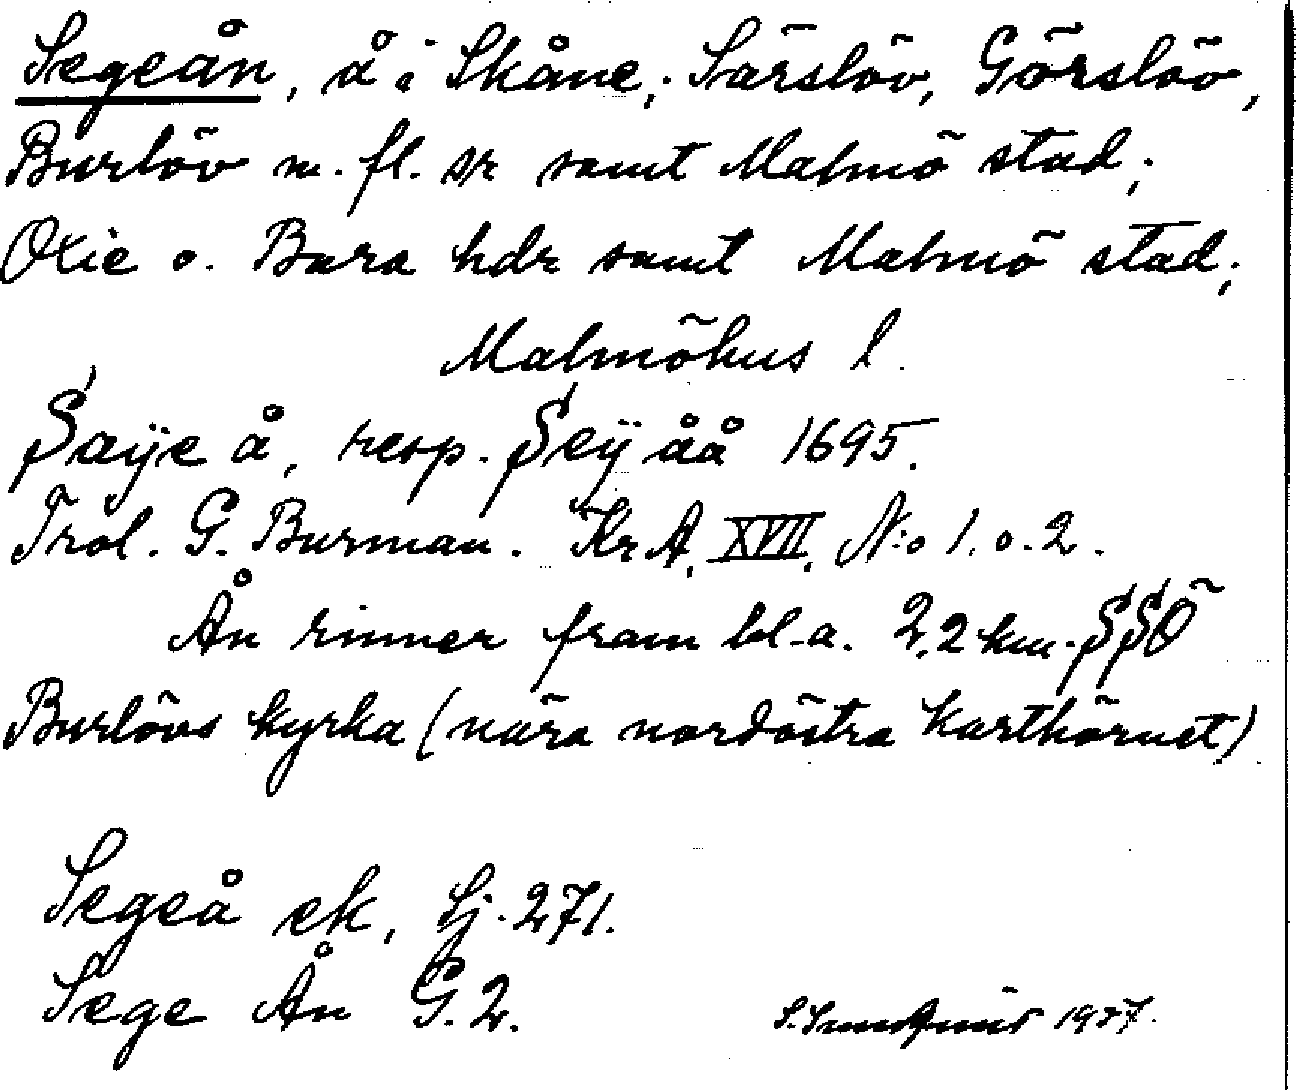 Segeån, å i Skåne; Särslöv, Görslöv,
Burlöv m. fl. sr samt Malmö stad;
Oxie o. Bara hdr samt Malmö stad;
Malmöhus l.
Saÿe å, resp. Seÿ åå 1695.
Trol. G. Burman. Kr A. XVII. N:o 1. o. 2.
Ån rinner fram bl.a. 2,2 km. SSÖ
Burlövs kyrka (nära nordöstra karthörnet)
Segeå ek, Lj. 271.
Sege Ån G. 2.